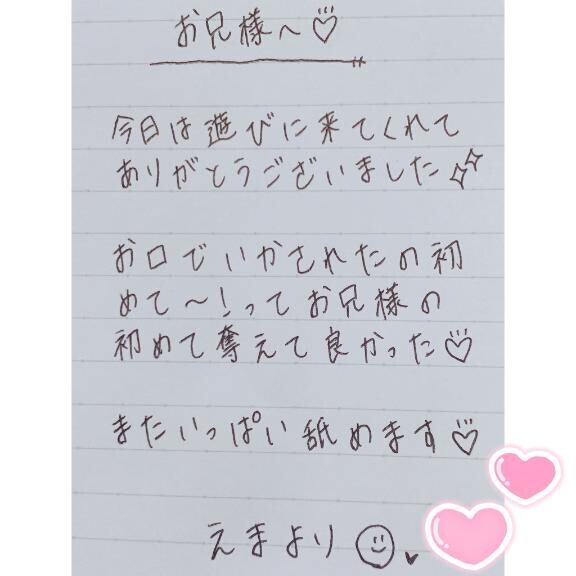 お兄様へ♡
今日は遊びに来てくれて
ありがとうございました✨
お口でいかされたの初
めて〜!ってお兄様の
初めて奪えて良かった♡
またいっぱい舐めます♡
えまより